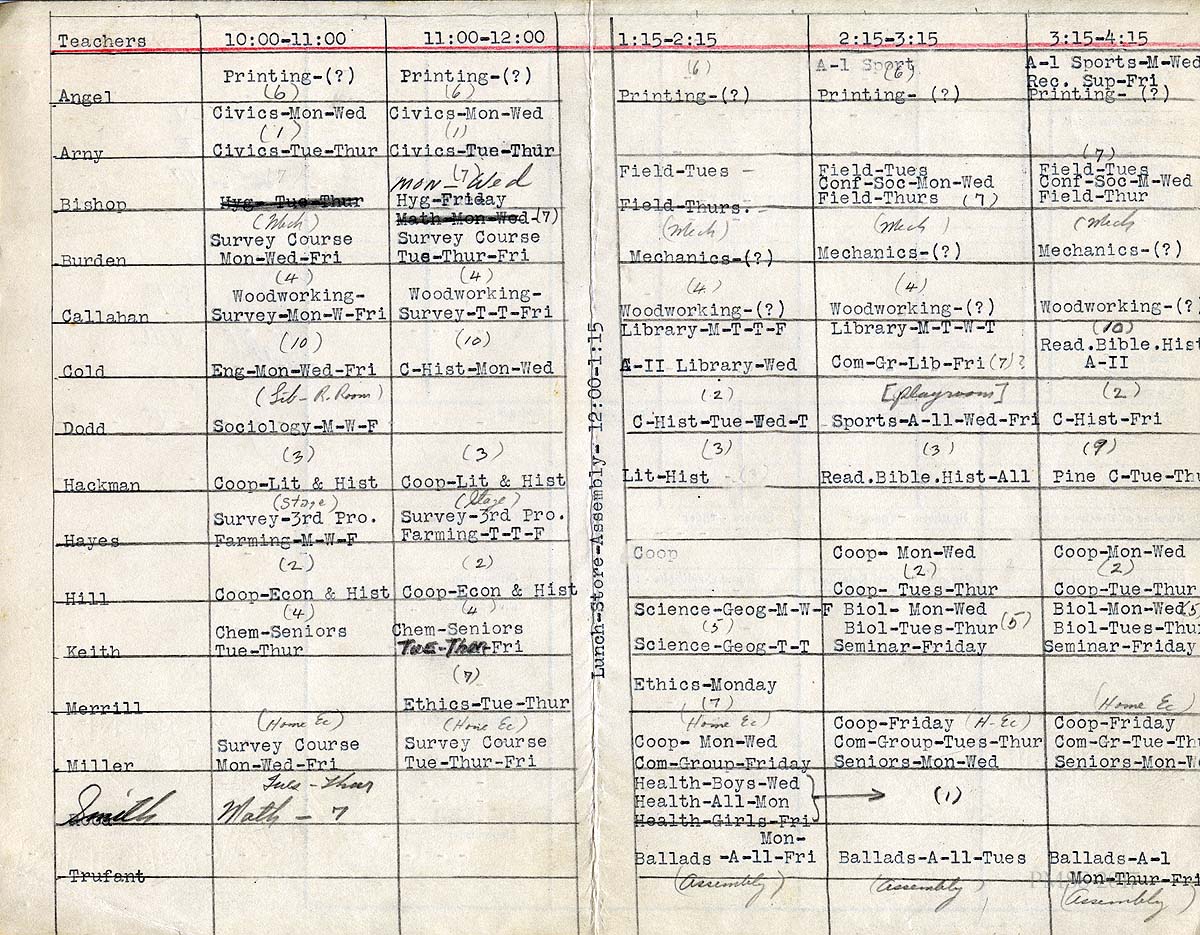 Teachers 10:00-11:00 11:00-12:00 1:15-2:15 2:15-3:15 3:15-4:15
Printing-(?) Printing-(?) (6) A-1 Sport (6) A-1 Sports-M-Wed
Rec. Sup-Fri
Angel (6) (6) Printing-(?) Printing- (?) Printing- (?)
Civics-Mon-Wed Civics-Mon-Wed
(1) (1)
Arny Civics-Tue-Thur Civics-Tue-Thur
(7)
7 (7) Field-Tues - Field-Tues Field-Tues
mon-Wed Conf-Soc-Mon-Wed Conf-Soc-M-Wed
Bishop Hyg- Tue-Thur Hyg-Friday Field-Thurs.- Field-Thurs (7) Field-Thur
Math-Mon-Wed-(7)
(Mech) (Mech) (Mech) (Mech
Survey Course Survey Course
Burden Mon-Wed-Fri Tue-Thur-Fri Mechanics-(?) Mechanics-(?) Mechanics-(?)
(4) (4) (4) (4)
Woodworking- Woodworking-
Callahan Survey-Mon-W-Fri Survey-T-T-Fri Woodworking-(?) Woodworking-(?) Woodworking-(?)
Library-M-T-T-F Library-M-T-W-T (10)
(10) (10) Read.Bible.Hist
Cold Eng-Mon-Wed-Fri C-Hist-Mon-Wed A-II Library-Wed Com-Gr-Lib-Fri(7)? A-II
(Lib-R.Room) (2) [playroom] (2)
Dodd Sociology-M-W-F C-Hist-Tue-Wed-T Sports-A-11-Wed-Fri C-Hist-Fri
(3) (3) (3) (3) (9)
Hackman Coop-Lit & Hist Coop-Lit & Hist Lit-Hist - (3) Read.Bible.Hist-All Pine C-Tue-Thu
(Stage) (Stage)
Survey-3rd Pro. Survey-3rd Pro.
Hayes Farming-M-W-F Farming-T-T-F
Coop Coop- Mon-Wed Coop-Mon-Wed
(2) (2) (2) (2)
Hill Coop-Econ & Hist Coop-Econ & Hist Coop- Tues-Thur Coop-Tue-Thur
(4) (4) Science-Geog-M-W-F Biol- Mon-Wed Biol-Mon-Wed(5
Chem-Seniors Chem-Seniors (5) Biol-Tues-Thur (5) Biol-Tues-Thur
Keith Tue-Thur Tue-Thur-Fri Science-Geog-T-T Seminar-Friday Seminar-Friday
(7) Ethics-Monday
Merrill Ethics-Tue-Thur (7)
(Home Ec) (Home Ec) (Home Ec) Coop-Friday (H-Ec) (Home Ec)
Coop-Friday
Survey Course Survey Course Coop- Mon-Wed Com-Group-Tues-Thur Com-Gr-Tue-Thu
Miller Mon-Wed-Fri Tue-Thur-Fri Com-Group-Friday Seniors-Mon-Wed Seniors-Mon-We
Tues-Thur Health-Boys-Wed
Smith Math - 7 Health-All-Mon (1)
Health-Girls-Fri
Mon-
Ballads -A-11-Fri Ballads-A-11-Tues Ballads-A-1
Trufant (Assembly) (Assembly) Mon-Thur-Fri
(Assembly)
Lunch-Store-Assembly- 12:00-1:15